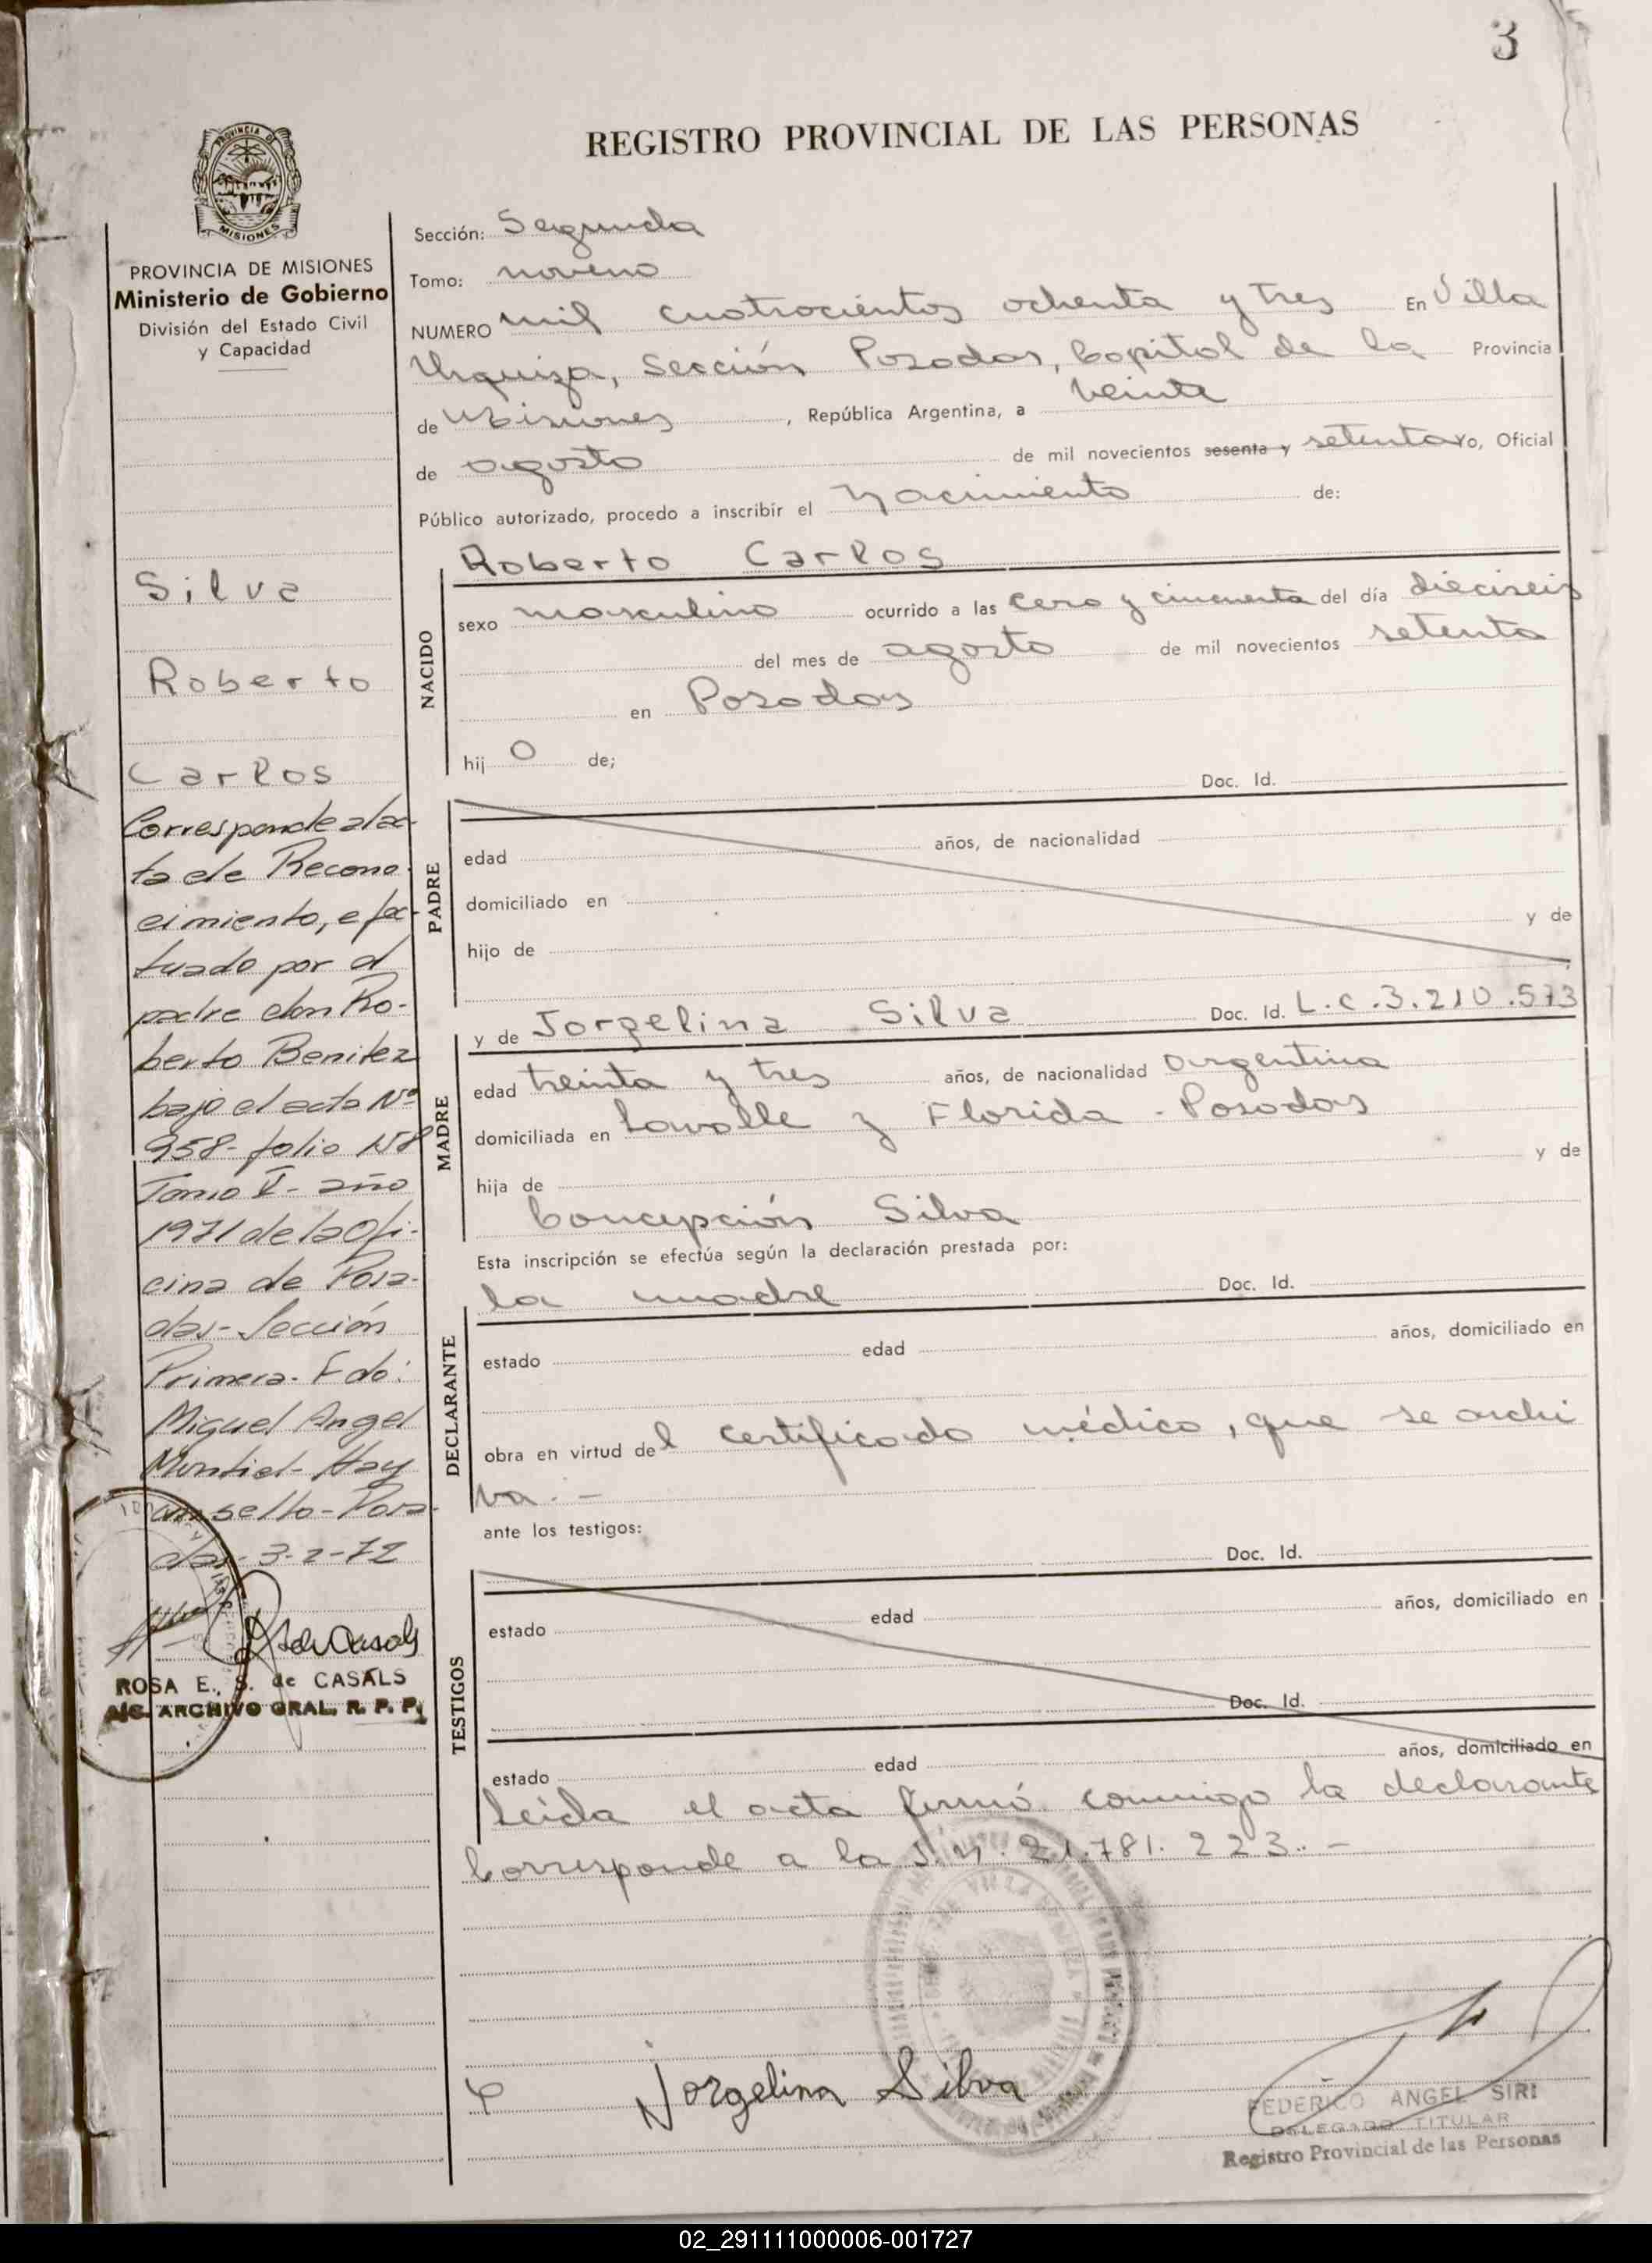 3
REGISTRO PROVINCIAL DE LAS PERSONAS
PROVINCIA DE
MISIONES
PROVINCIA DE MISIONES
Ministerio de Gobierno
División del Estado Civil
y Capacidad
Silva
Roberto
Carlos
Corresponde al ac-
ta de Recono-
cimiento, efec-
tuado por el
padre don Ro-
berto Benitez
bajo el acta Nº
958- folio Nº8
Tomo V- año
1971 de la Ofi-
cina de Posa-
das- Sección
Primera. Fdo:
Miguel Angel
Montiel- Hay
un sello- Posa-
das- 3-2-72
ROSA E. S. de CASALS
A/C. ARCHIVO GRAL. R. P. P.
Sección: Segunda
Tomo: noveno
NUMERO mil cuatrocientos ochenta y tres En Villa
Urquiza, Sección Posadas, Capital de la Provincia
de Misiones, República Argentina, a veinte
de agosto de mil novecientos sesenta y setenta yo, Oficial
Público autorizado, procedo a inscribir el Nacimiento de:
NACIDO
Roberto Carlos
sexo masculino ocurrido a las cero y cincuenta del día dieciseis
del mes de agosto de mil novecientos setenta
en Posadas
hij o de;
PADRE
Doc. Id.
edad años, de nacionalidad
domiciliado en
hijo de y de
MADRE
y de Jorgelina Silva Doc. Id. L.C.3.210.573
edad treinta y tres años, de nacionalidad argentina
domiciliada en Lavalle y Florida - Posadas
hija de y de
Concepción Silva
Esta inscripción se efectúa según la declaración prestada por:
DECLARANTE
la madre Doc. Id.
estado edad años, domiciliado en
obra en virtud del certificado médico, que se archi
va. -
ante los testigos:
TESTIGOS
Doc. Id.
estado edad años, domiciliado en
Doc. Id.
estado edad años, domiciliado en
Leída el acta firmó conmigo la declarante
Corresponde a la 21.781.223. -
Jorgelina Silva
FEDERICO ANGEL SIRI
DELEGADO TITULAR
Registro Provincial de las Personas
02_291111000006-001727